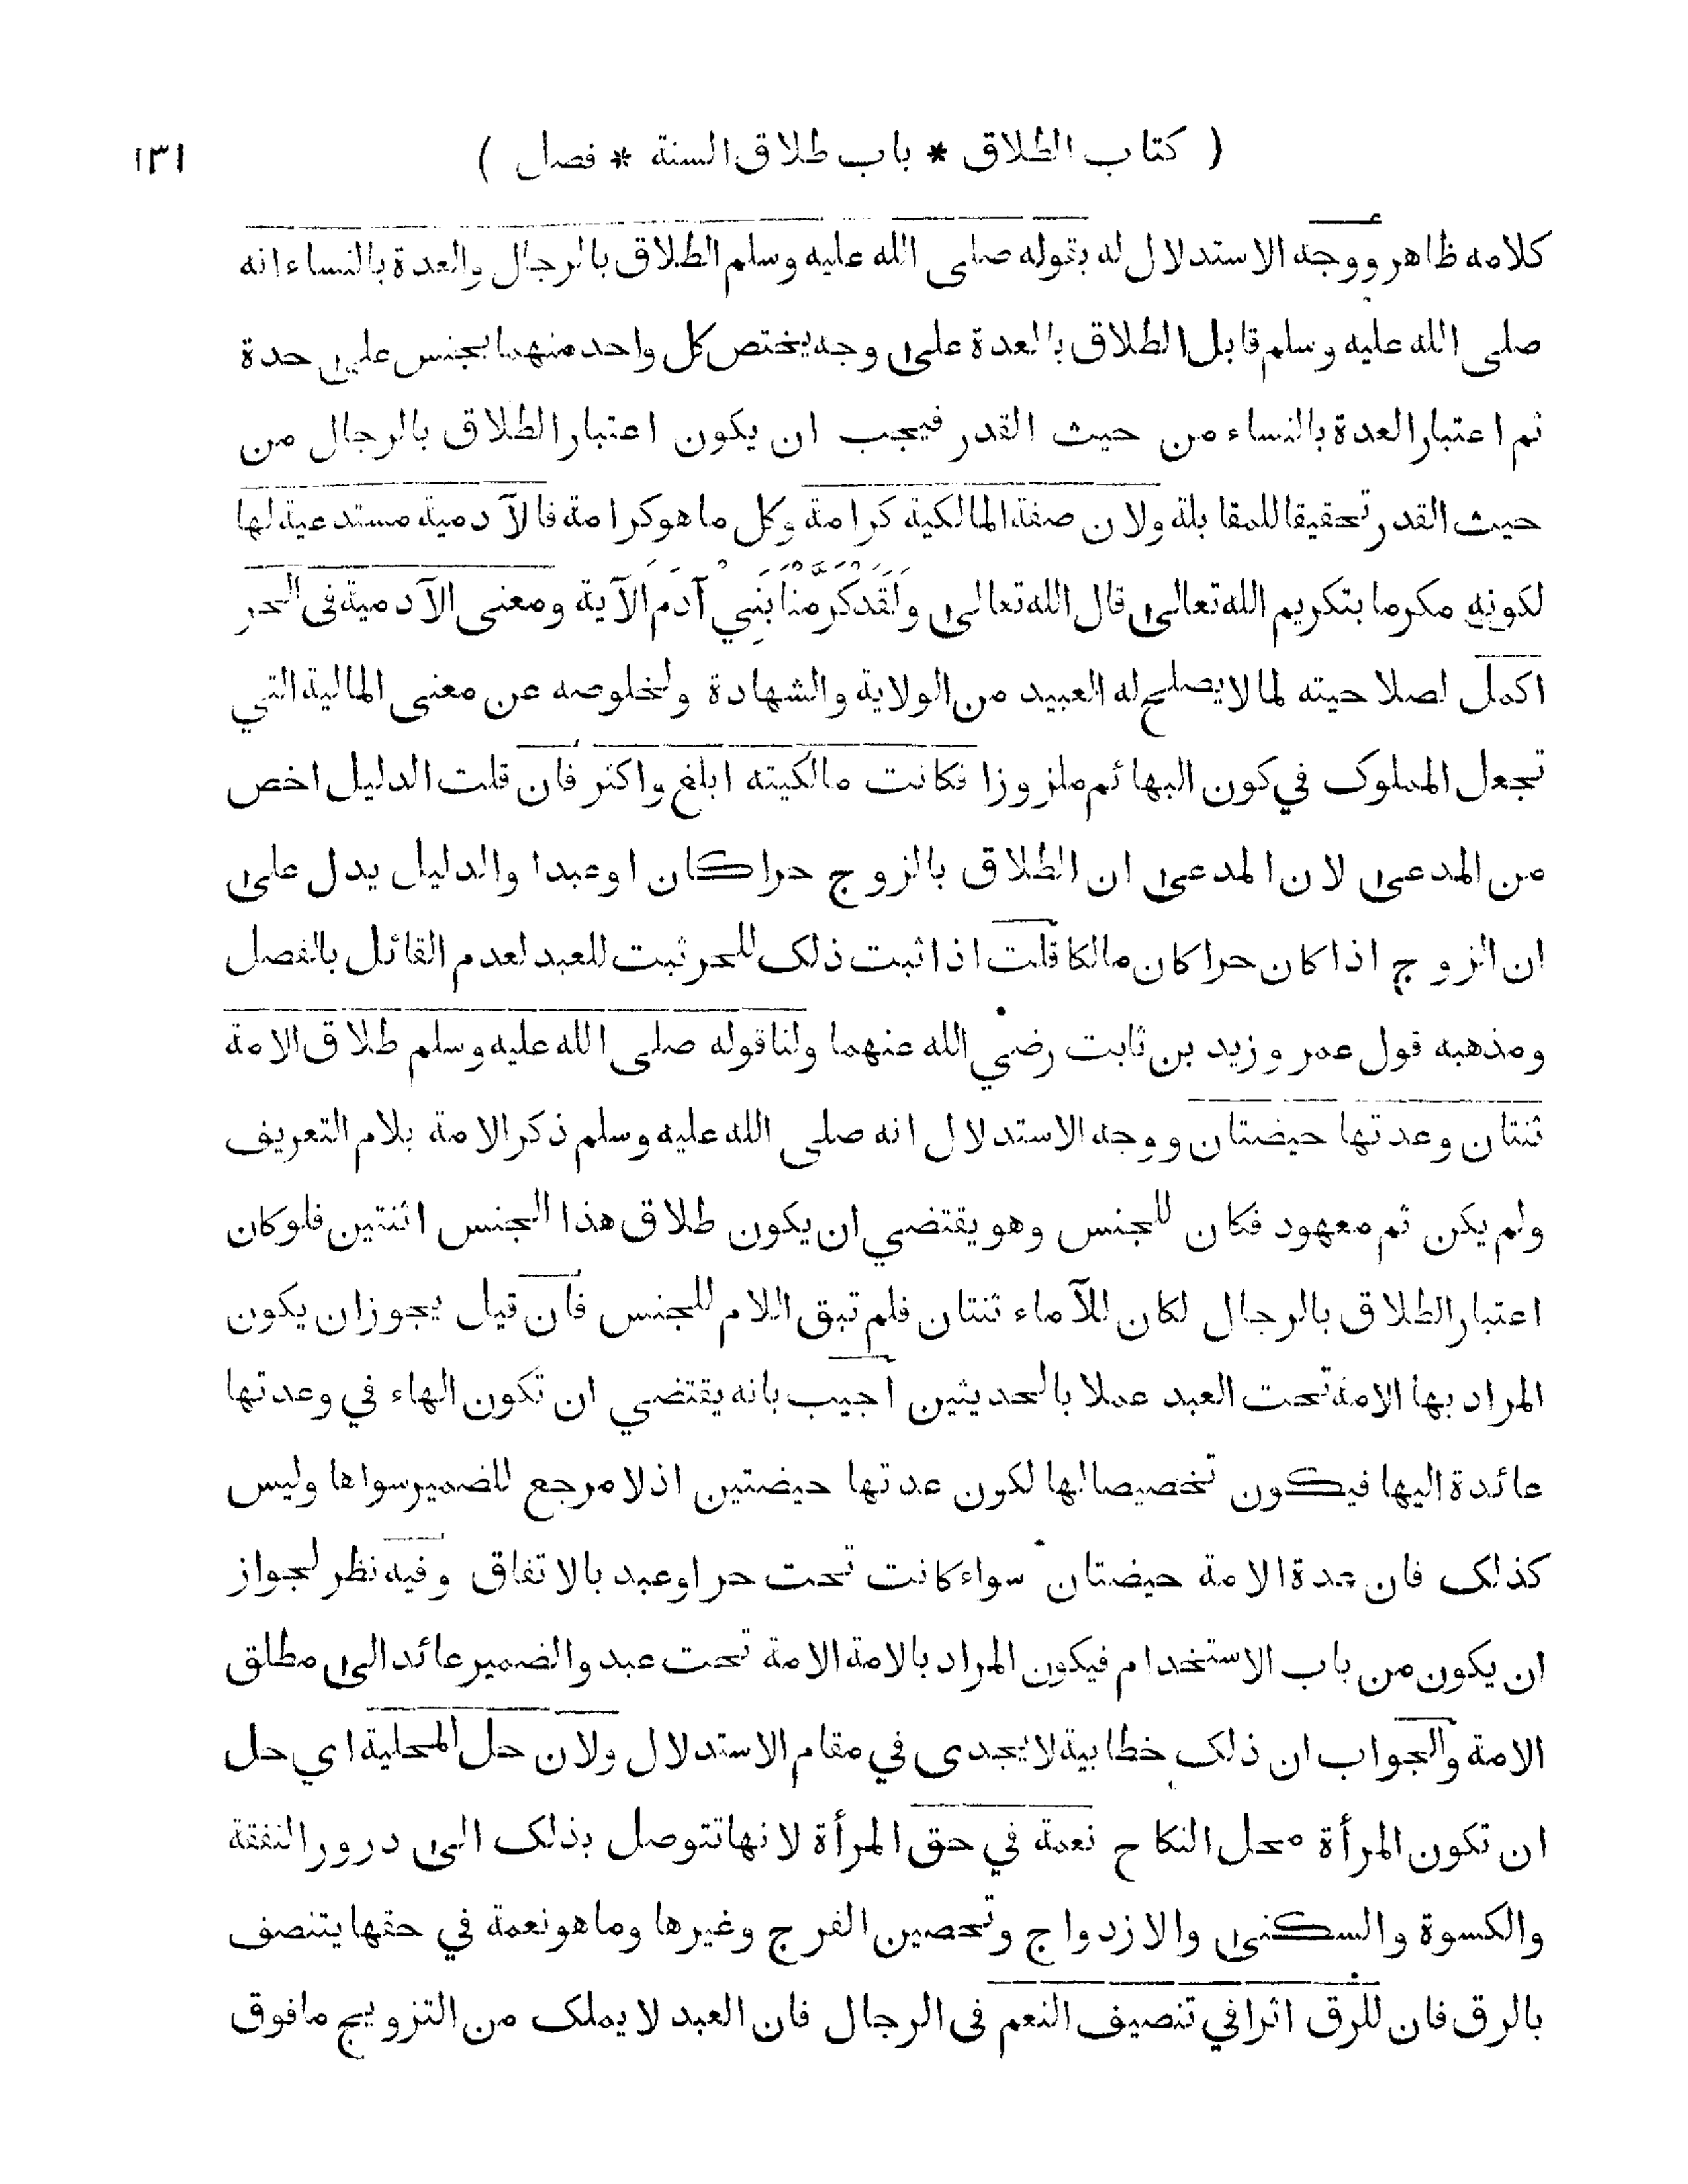 ( كتاب الطلاق * باب طلاق السنة * فصل ) ١٣١
كلامه ظاهر ووجه الاستدلال له بقوله صلى الله عليه وسلم الطلاق بالرجال والعدة بالنساء انه
صلى الله عليه وسلم قابل الطلاق بالعدة على وجه يختص كل واحد منهما بجنس على حدة
ثم اعتبار العدة بالنساء من حيث القدر فيجب ان يكون اعتبار الطلاق بالرجال من
حيث القدر تحقيقا للمقابلة ولان صفة المالكية كرامة وكل ما هو كرامة فالآدمية مستدعية لها
لكونه مكرما بتكريم الله تعالى قال الله تعالى وَلَقَدْ كَرَّمْنَا بَنِي آدَمَ الآية ومعنى الآدمية فى الحر
اكمل لصلاحيته لما لا يصلح له العبيد من الولاية والشهادة ولخلوصه عن معنى المالية التي
تجعل المملوك في كون البهائم ملزوزا فكانت مالكيته ابلغ واكثر فان قلت الدليل اخص
من المدعى لان المدعى ان الطلاق بالزوج حرا كان او عبدا والدليل يدل على
ان الزوج اذا كان حرا كان مالكا قلت اذا ثبت ذلك للحر ثبت للعبد لعدم القائل بالفصل
ومذهبه قول عمر و زيد بن ثابت رضي الله عنهما ولنا قوله صلى الله عليه وسلم طلاق الامة
ثنتان وعدتها حيضتان ووجه الاستدلال انه صلى الله عليه وسلم ذكر الامة بلام التعريف
ولم يكن ثم معهود فكان للجنس وهو يقتضي ان يكون طلاق هذا الجنس اثنتين فلو كان
اعتبار الطلاق بالرجال لكان للآماء ثنتان فلم تبق اللام للجنس فان قيل يجوز ان يكون
المراد بها الامة تحت العبد عملا بالحديثين اجيب بانه يقتضي ان تكون الهاء في وعدتها
عائدة اليها فيكون تخصيصا لها لكون عدتها حيضتين اذ لا مرجع للضمير سواها وليس
كذلك فان عدة الامة حيضتان سواء كانت تحت حر او عبد بالاتفاق وفيه نظر لجواز
ان يكون من باب الاستخدام فيكون المراد بالامة الامة تحت عبد والضمير عائد الى مطلق
الامة والجواب ان ذلك خطابية لا يجدى في مقام الاستدلال ولان حل المحلية اي حل
ان تكون المرأة محل النكاح نعمة في حق المرأة لانها تتوصل بذلك الى درور النفقة
والكسوة والسكنى والازدواج وتحصين الفرج وغيرها وما هو نعمة في حقها يتنصف
بالرق فان للرق اثرا في تنصيف النعم فى الرجال فان العبد لا يملك من التزويج ما فوق